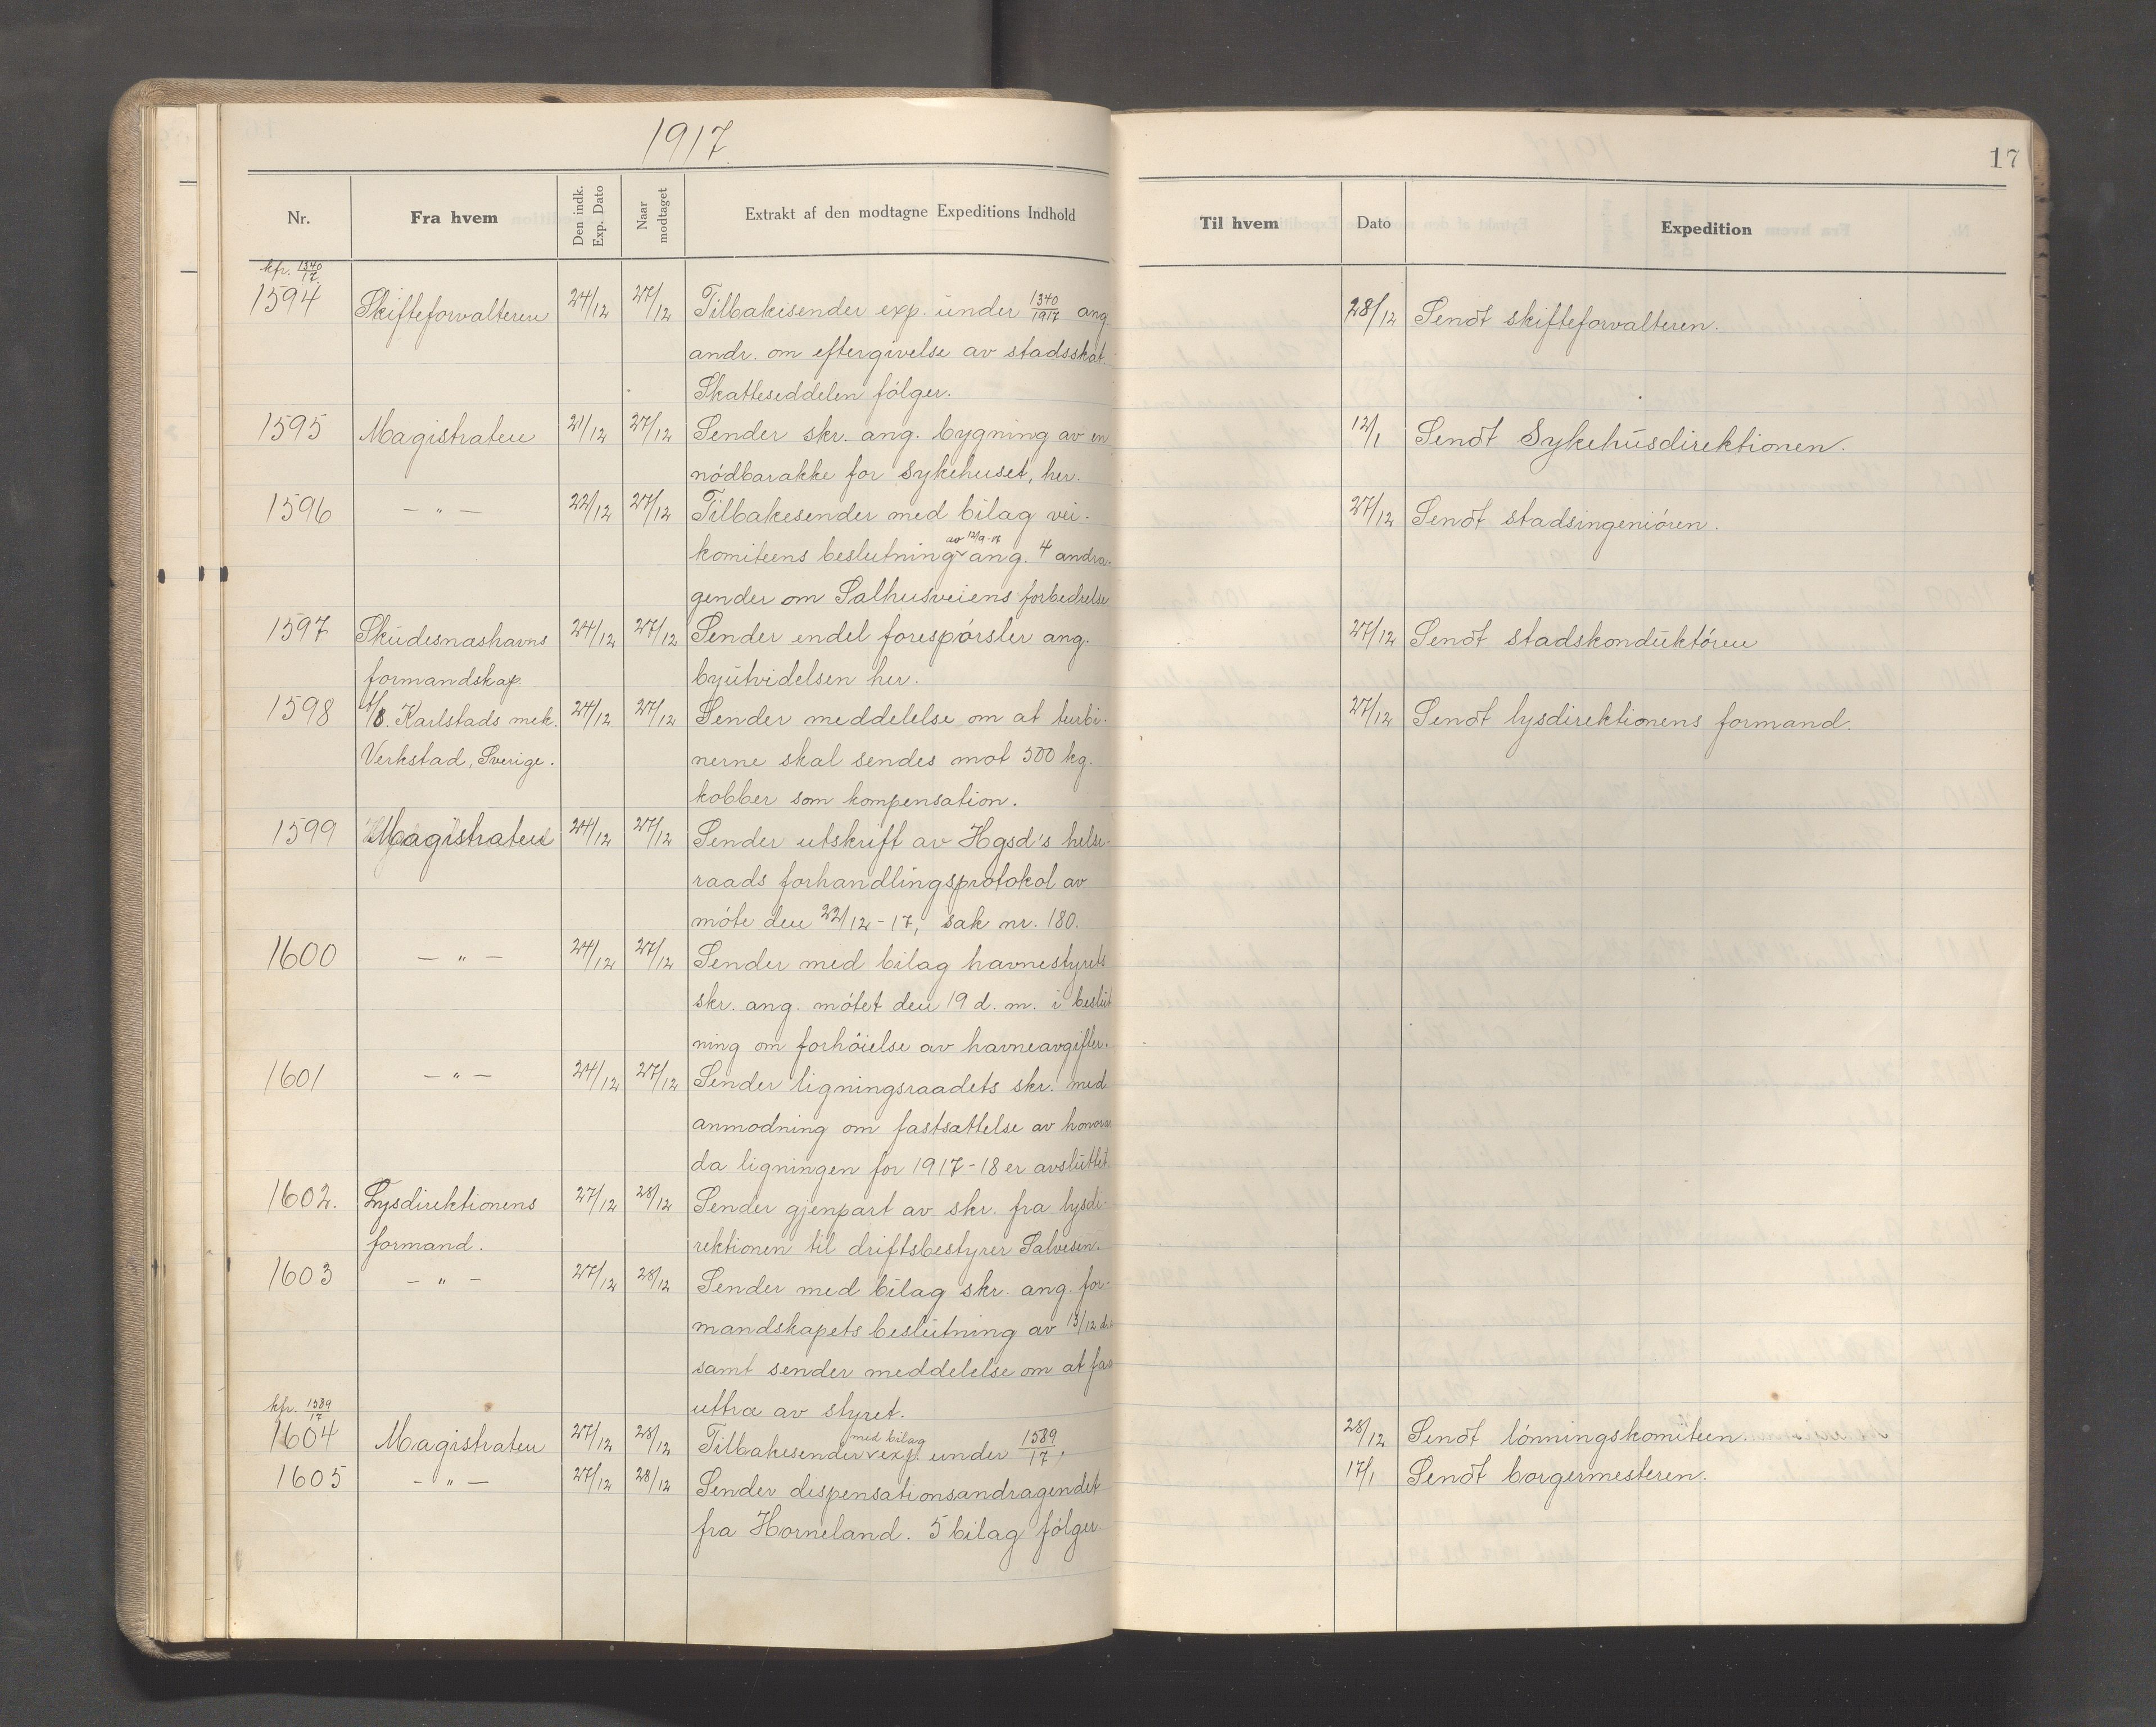 1917.
17
Nr.
Fra hvem
Den indk. Exp. Dato
Naar modtaget
Extrakt af den modtagne Expeditions Indhold
Til hvem
Dato
Expedition
kfr. 1340/17.
1594 Skifteforvalteren 24/12 27/12 Tilbakesender exp. under 1340/1917 ang. 28/12 Sendt skifteforvalteren.
andr. om eftergivelse av stadsskat.
Skatteseddelen følger.
1595 Magistraten 21/12 27/12 Sender skr. ang. bygning av en 12/1 Sendt Sykehusdirektionen.
nødbarakke for Sykehuset, her.
1596 — " — 22/12 27/12 Tilbakesender med bilag vei- 27/12 Sendt stadsingeniøren.
komiteens beslutning av 12/9-17 ang. 4 andra-
gender om Salhusveiens forbedrelse
1597 Skudesnashavns 24/12 27/12 Sender endel forespørsler ang. 27/12 Sendt stadskonduktøren
formandskap. byutvidelsen her.
1598 A/B. Karlstads mek. 24/12 27/12 Sender meddelelse om at turbi- 27/12 Sendt lysdirektionens formand.
Verkstad, Sverige. nerne skal sendes mot 500 kg.
kobber som kompensation.
1599 Magistraten 24/12 27/12 Sender utskrift av Hgsd's helse-
raads forhandlingsprotokol av
møte den 22/12-17, sak nr. 180.
1600 — " — 24/12 27/12 Sender med bilag havnestyrets
skr. ang. møtet den 19 d. m. i beslut
ning om forhøielse av havneavgifter.
1601 — " — 24/12 27/12 Sender ligningsraadets skr. med
anmodning om fastsættelse av honorar
da ligningen for 1917-18 er avsluttet.
1602. Lysdirektionens 27/12 28/12 Sender gjenpart av skr. fra lysdi-
formand. rektionen til driftsbestyrer Salvesen.
1603 — " — 27/12 28/12 Sender med bilag skr. ang. for-
mandskapets beslutning av 13/12 ds
samt sender meddelelse om at
uttræ av styret.
kfr. 1589/17
1604 Magistraten 27/12 28/12 Tilbakesender med bilag exp. under 1589/17. 28/12 Sendt lønningskomiteen.
1605 — " — 27/12 28/12 Sender dispensationsandragendet 17/1 Sendt borgermesteren.
fra Horneland. 5 bilag følger.